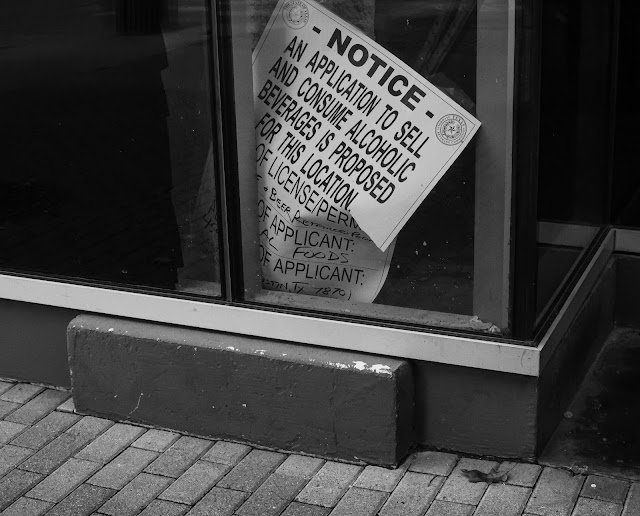 - NOTICE -
AN APPLICATION TO SELL
AND CONSUME ALCOHOLIC
BEVERAGES IS PROPOSED
FOR THIS LOCATION.
OF LICENSE/PERM
BEER
OF APPLICANT:
FOODS
OF APPLICANT:
TX 78701